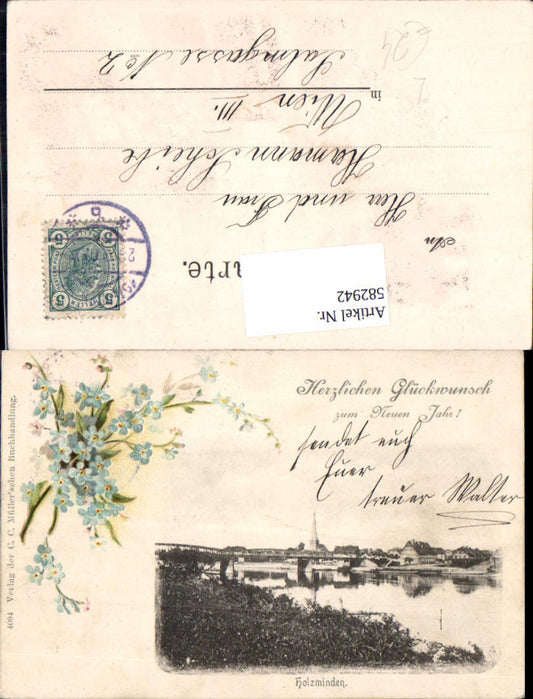 Salmgasse No 2
in Wien III.
Hermann Scheibe
Herr und Frau
An
arte.
5 5
5 5
Artikel Nr.
582942
Herzlichen Glückwunsch
zum Neuen Jahr!
sendet euch
Euer
treuer Walter
Holzminden.
4094 Verlag der C. C. Müller'schen Buchhandlung.